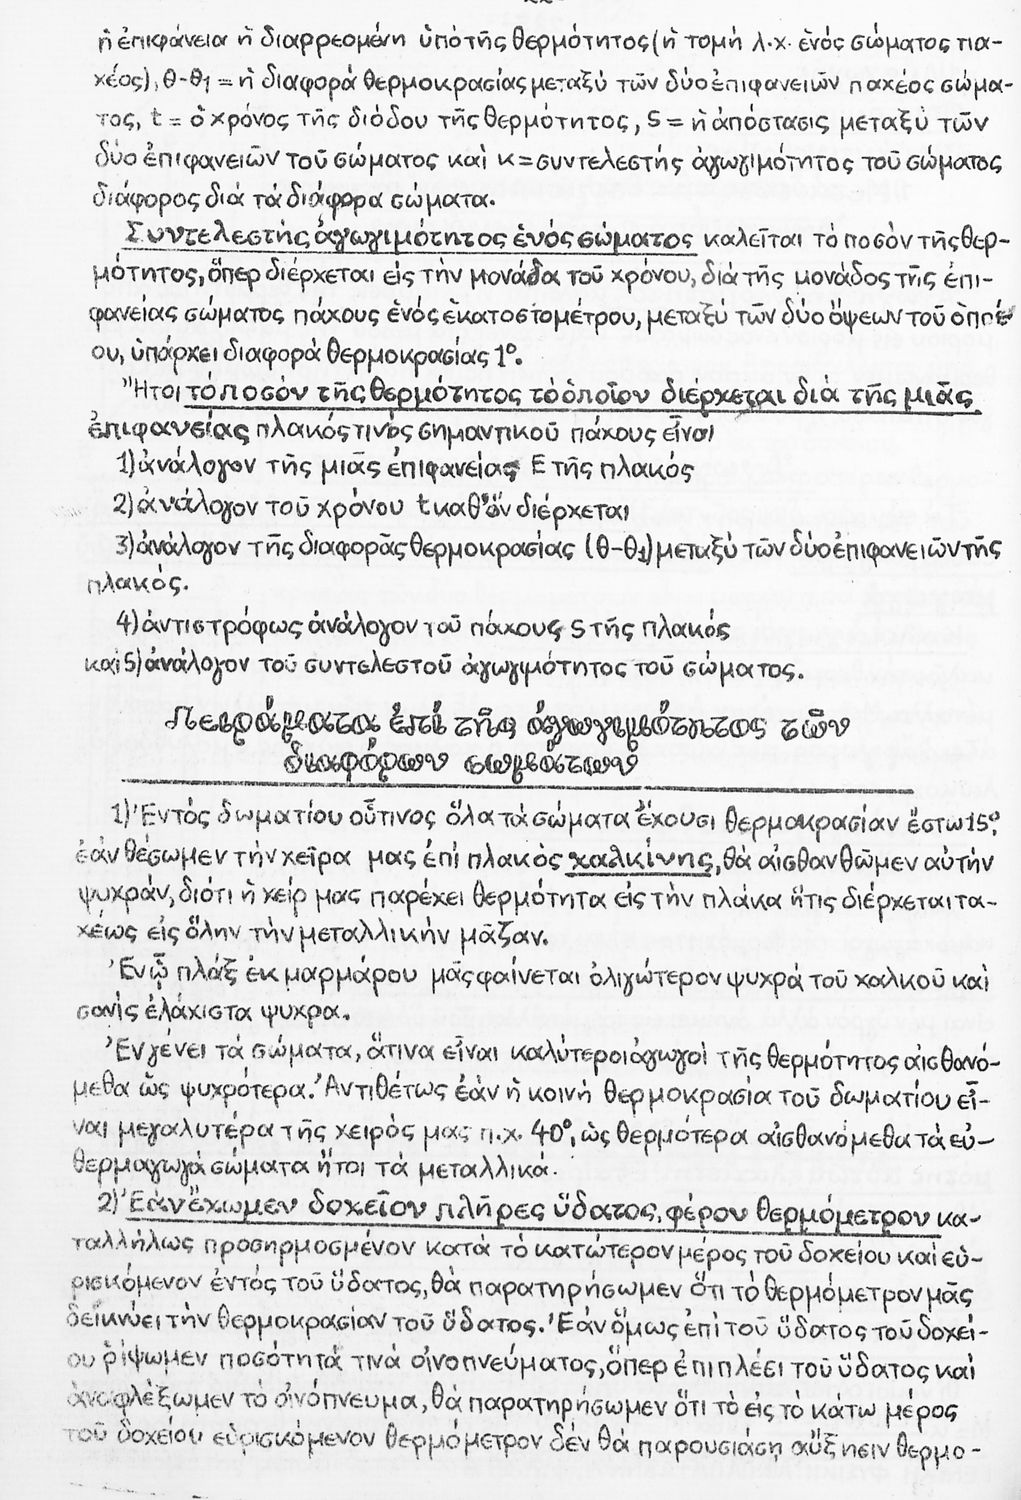 ἡ ἐπιφάνεια ἡ διαρρεομένη ὑπό τῆς θερμότητος (ἡ τομή λ.χ. ἑνός σώματος πα-
χέος), θ-θ1 = ἡ διαφορά θερμοκρασίας μεταξύ τῶν δύο ἐπιφανειῶν παχέος σώμα-
τος, t = ὁ χρόνος τῆς διόδου τῆς θερμότητος, S = ἡ ἀπόστασις μεταξύ τῶν
δύο ἐπιφανειῶν τοῦ σώματος καὶ κ = συντελεστής ἀγωγιμότητος τοῦ σώματος
διάφορος διά τά διάφορα σώματα.
Συντελεστής ἀγωγιμότητος ἑνός σώματος καλεῖται τό ποσόν τῆς θερ-
μότητος, ὅπερ διέρχεται εἰς τήν μονάδα τοῦ χρόνου, διά τῆς μονάδος τῆς ἐπι-
φανείας σώματος πάχους ἑνός ἑκατοστομέτρου, μεταξύ τῶν δύο ὄψεων τοῦ ὁποί
ου, ὑπάρχει διαφορά θερμοκρασίας 1º.
Ἤτοι τό ποσόν τῆς θερμότητος τό ὁποῖον διέρχεται διά τῆς μιᾶς
ἐπιφανείας πλακός τινός σημαντικοῦ πάχους εἶναι
1) ἀνάλογον τῆς μιᾶς ἐπιφανείας E τῆς πλακός
2) ἀνάλογον τοῦ χρόνου t καθ' ὅν διέρχεται
3) ἀνάλογον τῆς διαφορᾶς θερμοκρασίας (θ-θ1) μεταξύ τῶν δύο ἐπιφανειῶν τῆς
πλακός.
4) ἀντιστρόφως ἀνάλογον τοῦ πάχους S τῆς πλακός
καί 5) ἀνάλογον τοῦ συντελεστοῦ ἀγωγιμότητος τοῦ σώματος.
Πειράματα ἐπί τῆς ἀγωγιμότητος τῶν
διαφόρων σωμάτων
1) Ἐντός δωματίου οὗτινος ὅλα τά σώματα ἔχουσι θερμοκρασίαν ἔστω 15º,
ἐάν θέσωμεν τήν χεῖρα μας ἐπί πλακός χαλκίνης, θά αἰσθανθῶμεν αὐτήν
ψυχράν, διότι ἡ χείρ μας παρέχει θερμότητα εἰς τήν πλάκα ἥτις διέρχεται τα-
χέως εἰς ὅλην τήν μεταλλικήν μᾶζαν.
Ἐνῷ πλάξ ἐκ μαρμάρου μᾶς φαίνεται ὀλιγώτερον ψυχρά τοῦ χαλκοῦ καὶ
σανίς ἐλάχιστα ψυχρα.
Ἐν γένει τά σώματα, ἅτινα εἶναι καλύτεροι ἀγωγοί τῆς θερμότητος αἰσθανό-
μεθα ὡς ψυχρότερα. Ἀντιθέτως ἐάν ἡ κοινή θερμοκρασία τοῦ δωματίου εἶ-
ναι μεγαλυτέρα τῆς χειρός μας π.χ. 40º, ὡς θερμότερα αἰσθανόμεθα τά εὐ-
θερμαγωγά σώματα ἤτοι τά μεταλλικά.
2) Ἐάν ἔχωμεν δοχεῖον πλῆρες ὕδατος, φέρον θερμόμετρον κα-
ταλλήλως προσηρμοσμένον κατά τό κατώτερον μέρος τοῦ δοχείου καί εὑ-
ρισκόμενον ἐντός τοῦ ὕδατος, θά παρατηρήσωμεν ὅτι τό θερμόμετρον μᾶς
δεικνύει τήν θερμοκρασίαν τοῦ ὕδατος. Ἐάν ὅμως ἐπί τοῦ ὕδατος τοῦ δοχεί-
ου ῥίψωμεν ποσότητά τινά οἰνοπνεύματος, ὅπερ ἐπιπλέει τοῦ ὕδατος καὶ
ἀναφλέξωμεν τό οἰνόπνευμα, θά παρατηρήσωμεν ὅτι τό εἰς τό κάτω μέρος
τοῦ δοχείου εὑρισκόμενον θερμόμετρον δέν θά παρουσιάσῃ αὔξησιν θερμο-